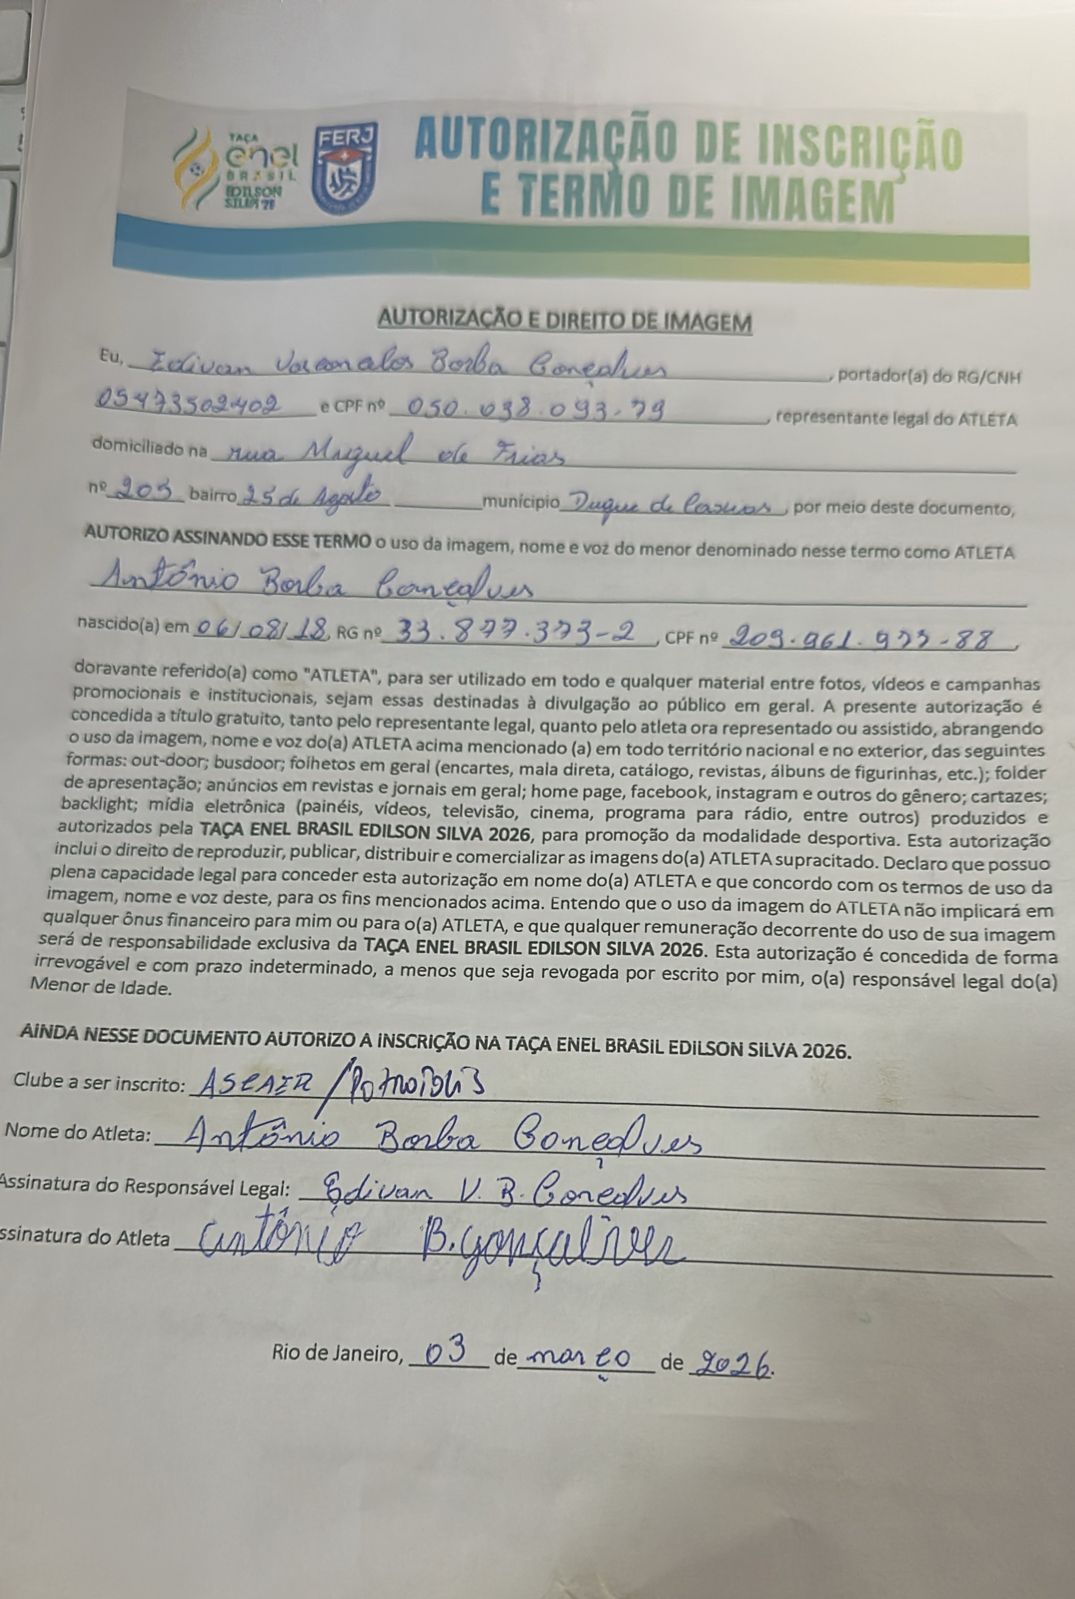 TAÇA
enel
BRASIL
EDILSON
SILVA 26
FERJ
AUTORIZAÇÃO DE INSCRIÇÃO
E TERMO DE IMAGEM
AUTORIZAÇÃO E DIREITO DE IMAGEM
Eu, Edivan Vasconcelos Borba Gonçalves, portador(a) do RG/CNH
05473502402 e CPF nº 050.038.093-79, representante legal do ATLETA
domiciliado na rua Miguel de Frias
nº 205 bairro 25 de Agosto município Duque de Caxias, por meio deste documento,
AUTORIZO ASSINANDO ESSE TERMO o uso da imagem, nome e voz do menor denominado nesse termo como ATLETA
Antônio Borba Gonçalves
nascido(a) em 06/08/18, RG nº 33.877.373-2, CPF nº 209.961.977-88,
doravante referido(a) como "ATLETA", para ser utilizado em todo e qualquer material entre fotos, vídeos e campanhas
promocionais e institucionais, sejam essas destinadas à divulgação ao público em geral. A presente autorização é
concedida a título gratuito, tanto pelo representante legal, quanto pelo atleta ora representado ou assistido, abrangendo
o uso da imagem, nome e voz do(a) ATLETA acima mencionado (a) em todo território nacional e no exterior, das seguintes
formas: out-door; busdoor; folhetos em geral (encartes, mala direta, catálogo, revistas, álbuns de figurinhas, etc.); folder
de apresentação; anúncios em revistas e jornais em geral; home page, facebook, instagram e outros do gênero; cartazes;
backlight; mídia eletrônica (painéis, vídeos, televisão, cinema, programa para rádio, entre outros) produzidos e
autorizados pela TAÇA ENEL BRASIL EDILSON SILVA 2026, para promoção da modalidade desportiva. Esta autorização
inclui o direito de reproduzir, publicar, distribuir e comercializar as imagens do(a) ATLETA supracitado. Declaro que possuo
plena capacidade legal para conceder esta autorização em nome do(a) ATLETA e que concordo com os termos de uso da
imagem, nome e voz deste, para os fins mencionados acima. Entendo que o uso da imagem do ATLETA não implicará em
qualquer ônus financeiro para mim ou para o(a) ATLETA, e que qualquer remuneração decorrente do uso de sua imagem
será de responsabilidade exclusiva da TAÇA ENEL BRASIL EDILSON SILVA 2026. Esta autorização é concedida de forma
irrevogável e com prazo indeterminado, a menos que seja revogada por escrito por mim, o(a) responsável legal do(a)
Menor de Idade.
AINDA NESSE DOCUMENTO AUTORIZO A INSCRIÇÃO NA TAÇA ENEL BRASIL EDILSON SILVA 2026.
Clube a ser inscrito: ASCAER /
Nome do Atleta: Antônio Borba Gonçalves
Assinatura do Responsável Legal: Edivan V. B. Gonçalves
ssinatura do Atleta Antônio B. Gonçalves
Rio de Janeiro, 03 de março de 2026.